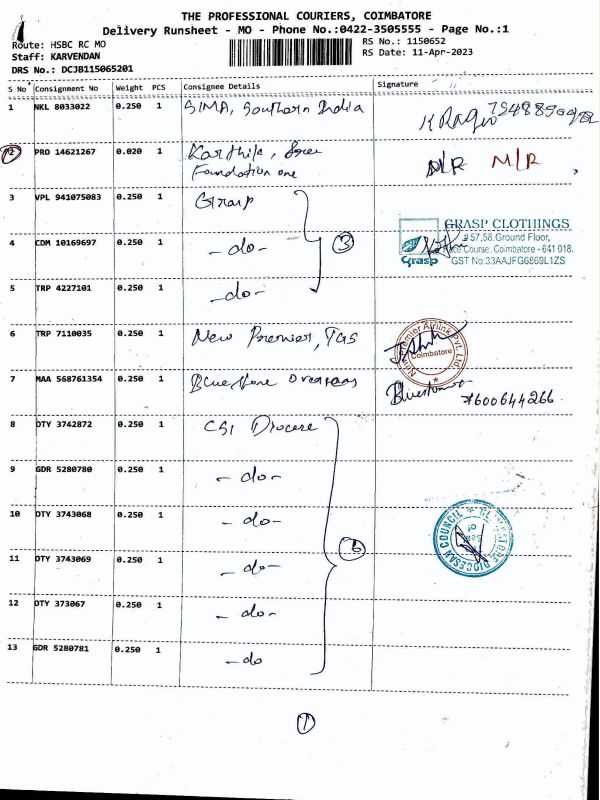 THE PROFESSIONAL COURIERS, COIMBATORE
Delivery Runsheet - MO - Phone No.:0422-3505555 - Page No.:1
Route: HSBC RC MO RS No.: 1150652
Staff: KARVENDAN RS Date: 11-Apr-2023
DRS No.: DCJB115065201
S No Consignment No Weight PCS Consignee Details Signature
1 NKL 8033022 0.250 1 SIMA, Southern India K Ragu
2 PRO 14621267 0.020 1 Karthik, Sree N/R M/R
Foundation one
3 VPL 941075083 0.250 1 Grasp
GRASP CLOTHINGS
#57,58, Ground Floor,
4 CDM 10169697 0.250 1 -do- 3 Race Course, Coimbatore - 641 018.
Grasp GST No:33AAJFG6869L1ZS
5 TRP 4227101 0.250 1 -do-
6 TRP 7110035 0.250 1 New Premier, TGS
New Premier Airlink Pvt. Ltd.
Coimbatore
7 MAA 568761354 0.250 1 Bluestone Overseas Bluestone
7600644266
8 DTY 3742872 0.250 1 CSI Diocese
9 GDR 5280780 0.250 1 -do-
10 DTY 3743068 0.250 1 -do-
6 DIOCESAN COUNCIL
11 DTY 3743069 0.250 1 -do-
12 DTY 373067 0.250 1 -do-
13 GDR 5280781 0.250 1 -do
1